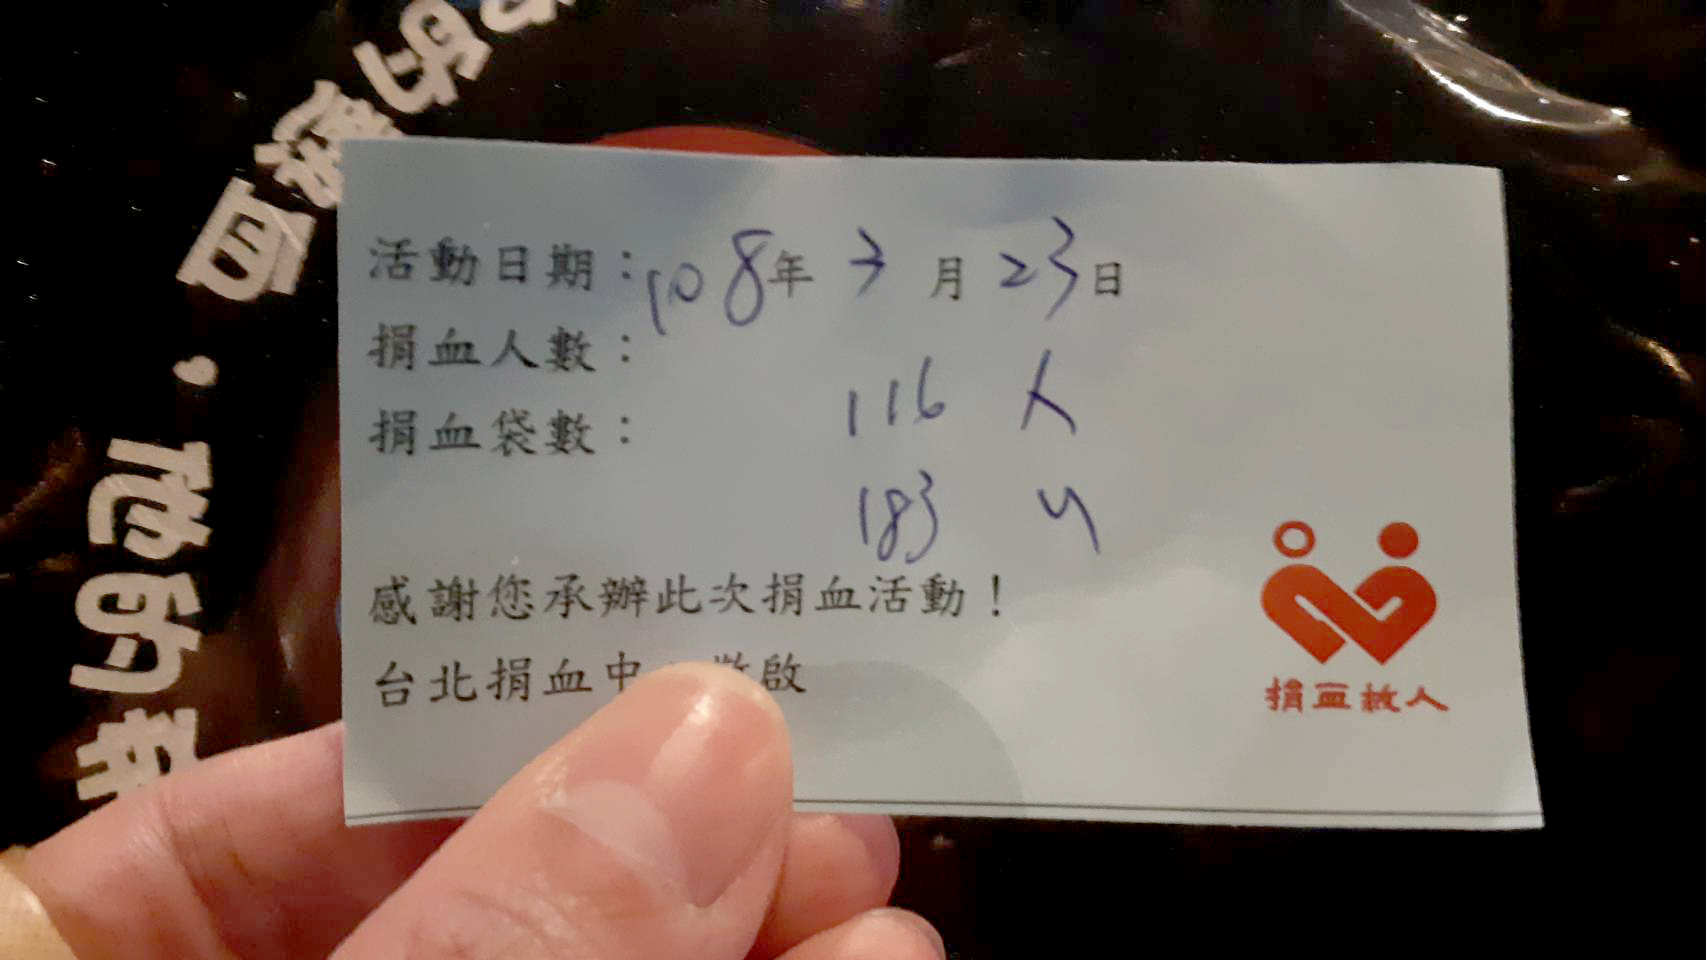 活動日期：108年 3 月 23日
捐血人數：
116 人
捐血袋數：
183 U
感謝您承辦此次捐血活動！
台北捐血中 敬啟
捐血救人